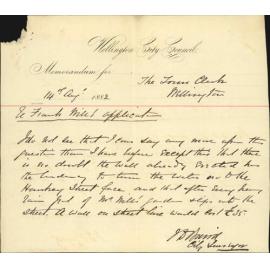 Wellington City Council.
Memorandum for
The Town Clerk
Wellington
14th Augt 1882
Re Frank Mills application
I do not see that I can say any more upon this
question than I have before except that that there
is no doubt the wall already erected has
the tendency to turn the water on to the
street face and that after every heavy
rain part of Mr Mills garden slips into the
street. A wall on street line would cost £35
City Surveyor